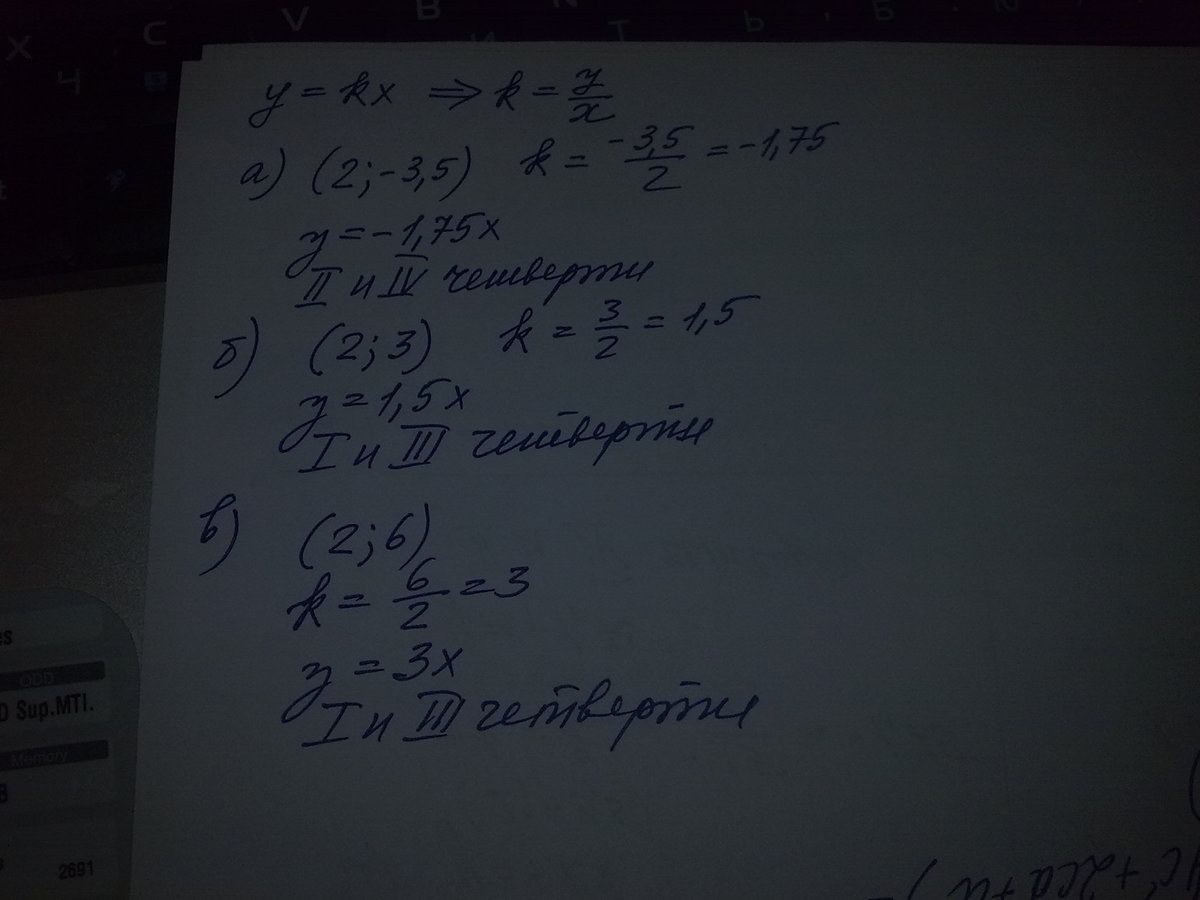 y = kx ⇒ k = y/x
а) (2; -3,5) k = -3,5/2 = -1,75
y = -1,75x
II и IV четверти
б) (2; 3) k = 3/2 = 1,5
y = 1,5x
I и III четверти
в) (2; 6)
k = 6/2 = 3
y = 3x
I и III четверти
ODD
Sup.MTI.
Memory
2691